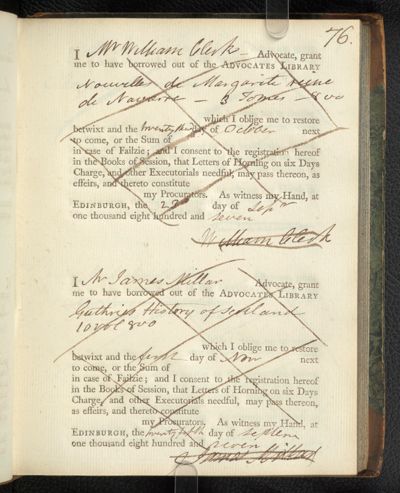 76.
I Mr William Clerk Advocate, grant
me to have borrowed out of the ADVOCATES LIBRARY
Nouvelles de Margarite reine
de Navarre – 3 Tomes – 8vo
which I oblige me to restore
betwixt and the day of October next
to come, or the Sum of
in case of Failzie; and I consent to the registration hereof
in the Books of Session, that Letters of Horning on six Days
Charge, and other Executorials needful, may pass thereon, as
effeirs, and thereto constitute
my Procurators. As witness my Hand, at
EDINBURGH, the day of Sepr
one thousand eight hundred and seven
William Clerk
I Mr James Millar Advocate, grant
me to have borrowed out of the ADVOCATES LIBRARY
Guthries History of Scotland
10 vol 8vo
which I oblige me to restore
betwixt and the first day of Nov next
to come, or the Sum of
in case of Failzie; and I consent to the registration hereof
in the Books of Session, that Letters of Horning on six Days
Charge, and other Executorials needful, may pass thereon,
as effeirs, and thereto constitute
my Procurators. As witness my Hand, at
EDINBURGH, the day of
one thousand eight hundred and seven
James Millar